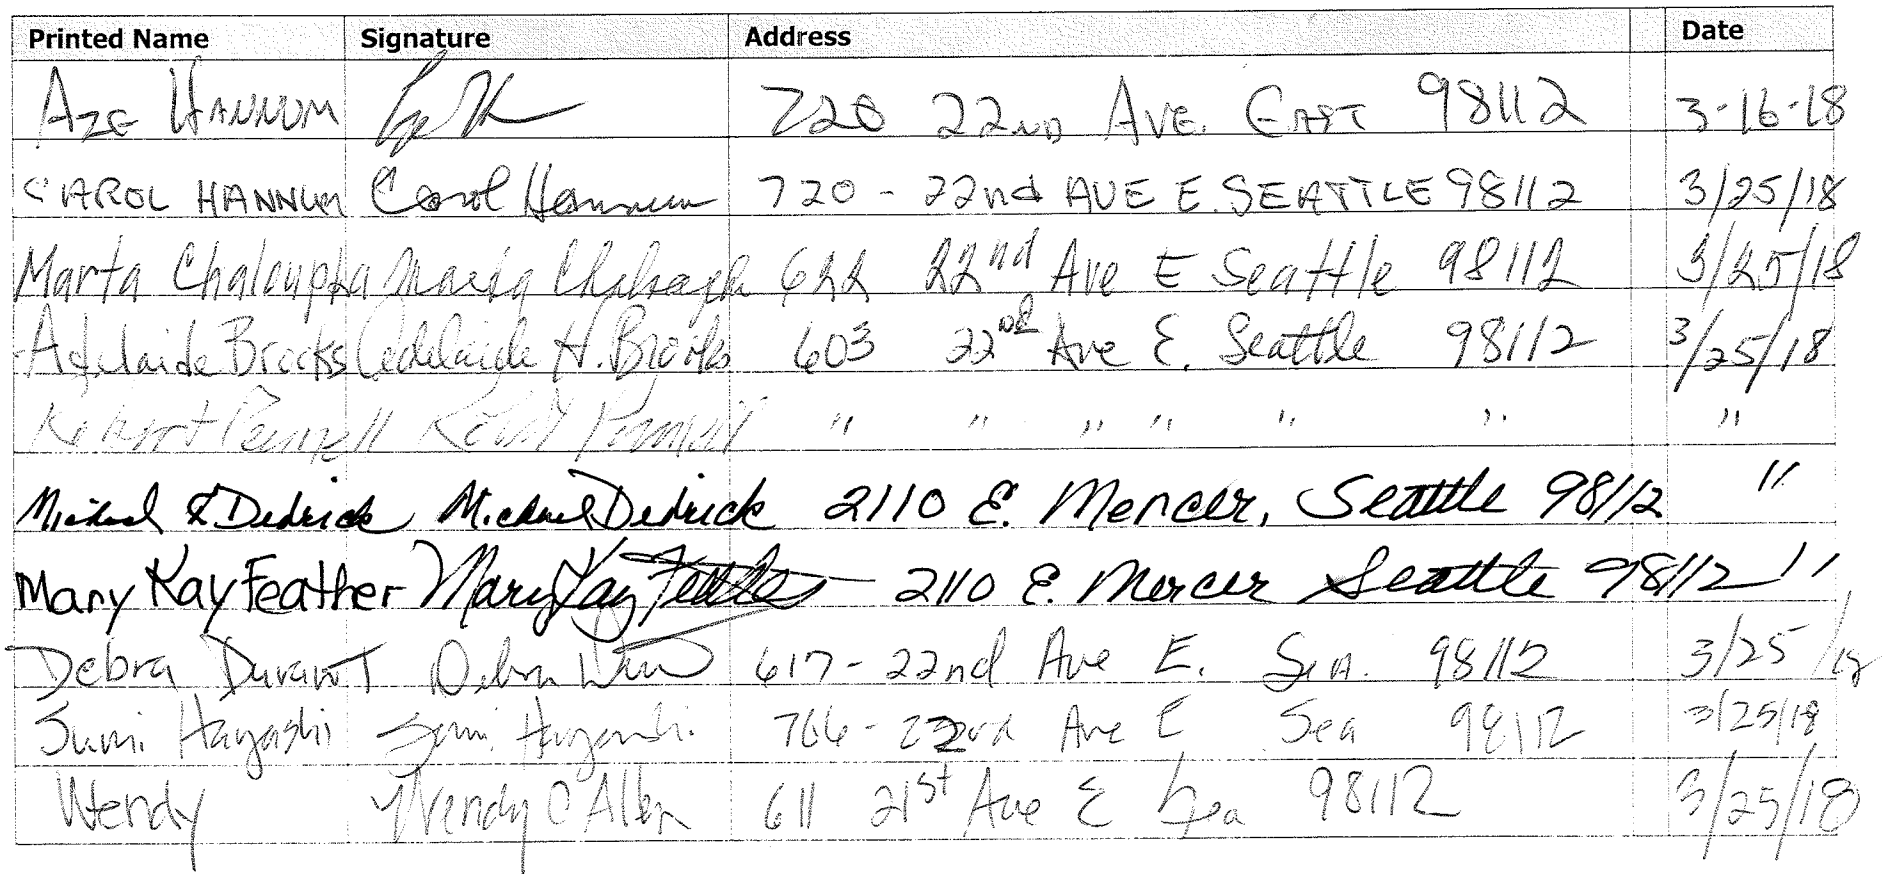 Printed Name Signature Address Date
AZE HANNUM 720 22ND AVE. EAST 98112 3-16-18
CAROL HANNUM Carol Hannum 720 - 22nd AVE E. SEATTLE 98112 3/25/18
Marta Chaloupka Marta Chaloupka 622 22nd Ave E Seattle 98112 3/25/18
Adelaide Brooks Adelaide H. Brooks 603 22nd Ave E. Seattle 98112 3/25/18
Robert Pennell Robert Pennell " " " " " " "
Michael & Dedrick Michael Dedrick 2110 E. Mercer, Seattle 98112 "
Mary Kay Feather Mary Kay Feather - 2110 E. Mercer Seattle 98112 "
Debra Durant 617 - 22nd Ave E. Sea. 98112 3/25/18
Sumi Hayashi Sumi Hayashi Ave E Sea 98112 3/25/18
Wendy Wendy O Allen 611 21st Ave E Sea 98112 3/25/18